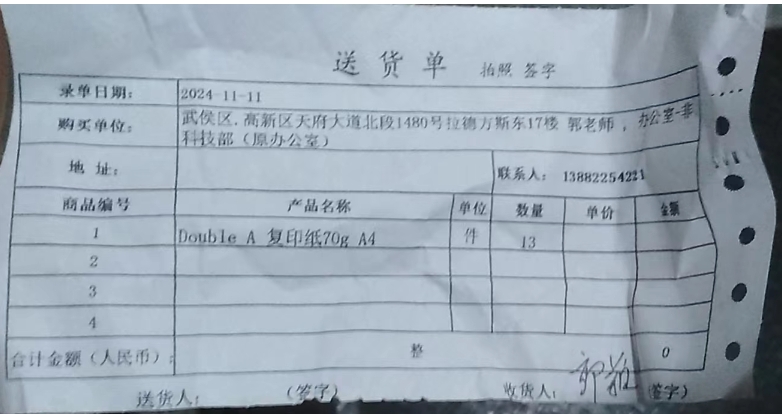 送货单 拍照 签字
录单日期： 2024-11-11
购买单位： 武侯区.高新区天府大道北段1480号拉德方斯东17楼 郭老师，办公室-非
科技部（原办公室）
地 址： 联系人： 13882254221
商品编号 产品名称 单位 数量 单价 金额
1 Double A 复印纸70g A4 件 13
2
3
4
合计金额（人民币）： 整 0
送货人： （签字） 收货人： （签字）